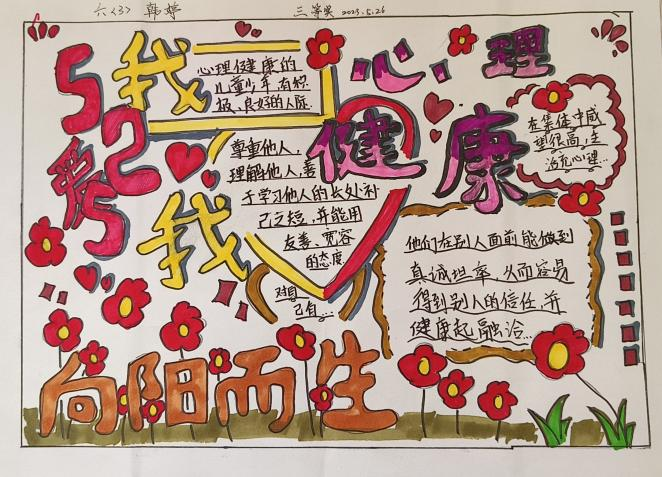 六〈3〉 韩婷
三等奖 2023.5.26
5
2
5
我
爱
我
心理
健康
心理健康的
儿童少年，有积
极、良好的人际
尊重他人，
理解他人，善
于学习他人的长处补
己之短，并能用
友善、宽容
的态度
对自
己有…
在集体中威
望很高，生
活充心理…
他们在别人面前能做到
真诚坦率，从而容易
得到别人的信任，并
健康起融洽…
向阳而生